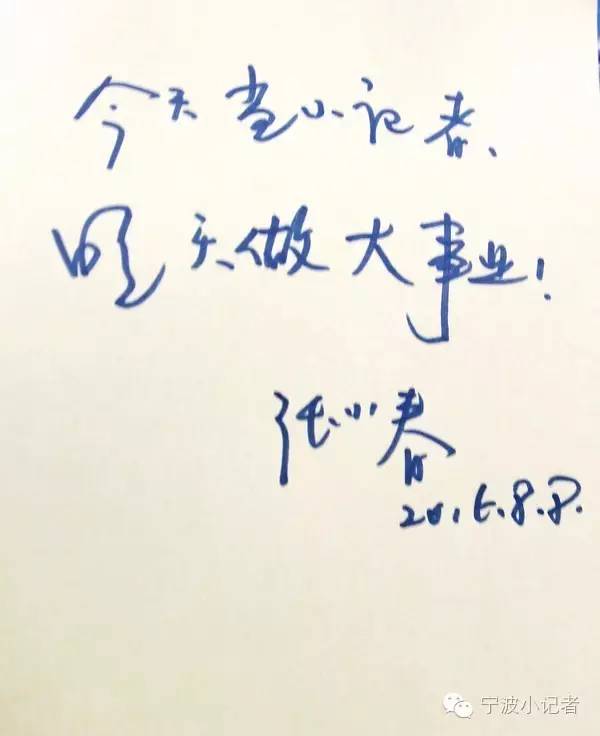 今天当小记者、
明天做大事业！
张小春
2016.8.8.
宁波小记者